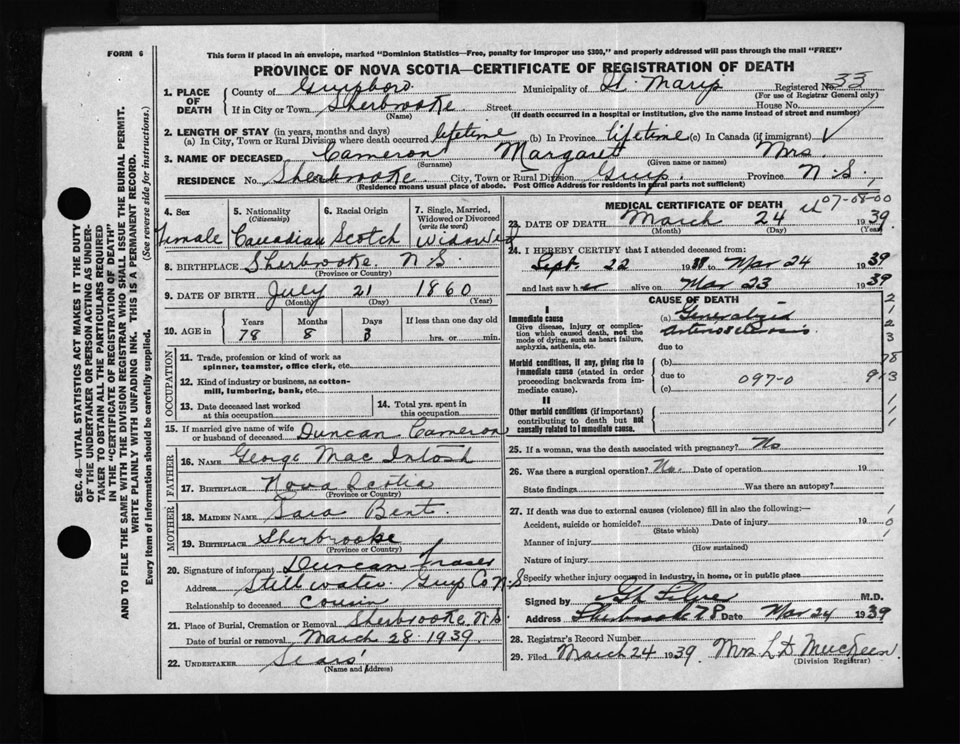 FORM 6
This form if placed in an envelope, marked "Dominion Statistics—Free, penalty for improper use $300," and properly addressed will pass through the mail "FREE"
PROVINCE OF NOVA SCOTIA—CERTIFICATE OF REGISTRATION OF DEATH
1. PLACE OF DEATH
County of Guysboro Municipality of St. Marys Registered No. 33
(For use of Registrar General only)
If in City or Town Sherbrooke Street House No.
(Name) (If death occurred in a hospital or institution, give the name instead of street and number)
2. LENGTH OF STAY (in years, months and days)
(a) In City, Town or Rural Division where death occurred lifetime (b) In Province lifetime (c) In Canada (if immigrant)
3. NAME OF DECEASED Cameron Margaret Mrs.
(Surname) (Given name or names)
RESIDENCE No. Sherbrooke City, Town or Rural Division Guys. Province N.S.
(Residence means usual place of abode. Post Office Address for residents in rural parts not sufficient)
4. Sex
Female
5. Nationality (Citizenship)
Canadian
6. Racial Origin
Scotch
7. Single, Married, Widowed or Divorced (write the word)
Widowed
8. BIRTHPLACE Sherbrooke N.S.
(Province or Country)
9. DATE OF BIRTH July 21 1860
(Month) (Day) (Year)
10. AGE in Years Months Days If less than one day old
78 8 3 hrs. or min.
OCCUPATION
11. Trade, profession or kind of work as spinner, teamster, office clerk, etc.
12. Kind of industry or business, as cotton-mill, lumbering, bank, etc.
13. Date deceased last worked at this occupation
14. Total yrs. spent in this occupation
15. If married give name of wife or husband of deceased Duncan Cameron
FATHER
16. NAME George Mac Intosh
17. BIRTHPLACE Nova Scotia
(Province or Country)
MOTHER
18. MAIDEN NAME Sara Bent
19. BIRTHPLACE Sherbrooke
(Province or Country)
20. Signature of informant Duncan Fraser
Address Stillwater Guys Co N.S
Relationship to deceased cousin
21. Place of Burial, Cremation or Removal Sherbrooke, N.S
Date of burial or removal March 28 1939.
22. UNDERTAKER Sears'
(Name and Address)
MEDICAL CERTIFICATE OF DEATH
07-08-00
23. DATE OF DEATH March 24 1939
(Month) (Day) (Year)
24. I HEREBY CERTIFY that I attended deceased from:
Sept. 22 1938 to Mar 24 1939
and last saw her alive on Mar 23 1939
CAUSE OF DEATH
I
Immediate cause
Give disease, injury or complication which caused death, not the mode of dying, such as heart failure, asphyxia, asthenia, etc.
(a) Generalized arteriosclerosis
due to
Morbid conditions, if any, giving rise to immediate cause (stated in order proceeding backwards from immediate cause).
(b)
due to 097-0
(c)
II
Other morbid conditions (if important) contributing to death but not causally related to immediate cause.
25. If a woman, was the death associated with pregnancy? No
26. Was there a surgical operation? No. Date of operation 19
State findings Was there an autopsy?
27. If death was due to external causes (violence) fill in also the following:—
Accident, suicide or homicide? Date of injury 19
(State which)
Manner of injury
(How sustained)
Nature of injury
Specify whether injury occurred in industry, in home, or in public place
Signed by M.D.
Address Sherbrooke Date Mar 24 1939
28. Registrar's Record Number
29. Filed March 24 1939 Mrs L D
(Division Registrar)
SEC. 46—VITAL STATISTICS ACT MAKES IT THE DUTY
OF THE UNDERTAKER OR PERSON ACTING AS UNDER-
TAKER TO OBTAIN ALL THE PARTICULARS REQUIRED
IN THE "CERTIFICATE OF REGISTRATION OF DEATH"
AND TO FILE THE SAME WITH THE DIVISION REGISTRAR WHO SHALL ISSUE THE BURIAL PERMIT.
WRITE PLAINLY WITH UNFADING INK. THIS IS A PERMANENT RECORD.
Every item of information should be carefully supplied. (See reverse side for instructions.)